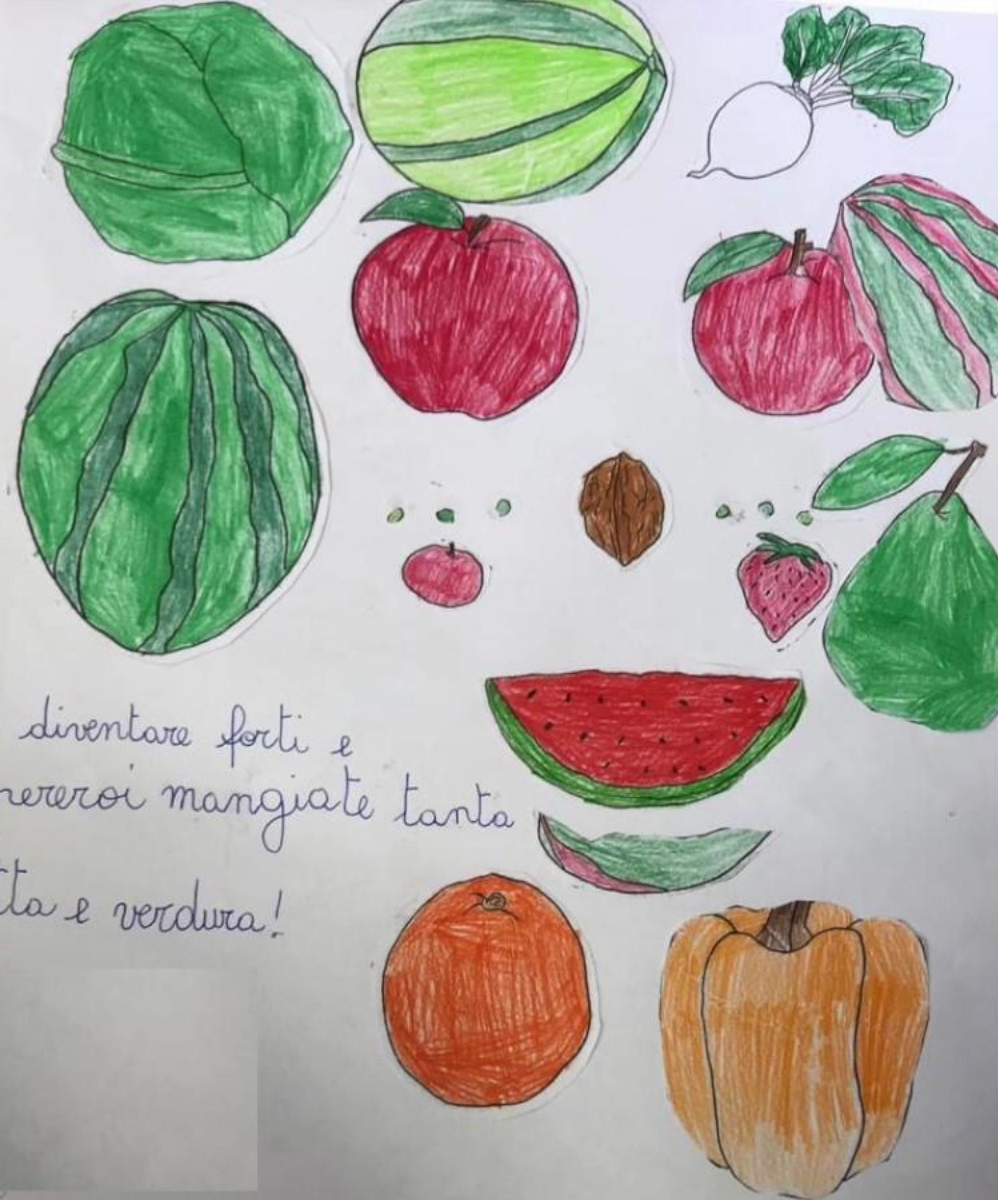 diventare forti e
mangiate tanta
e verdura!